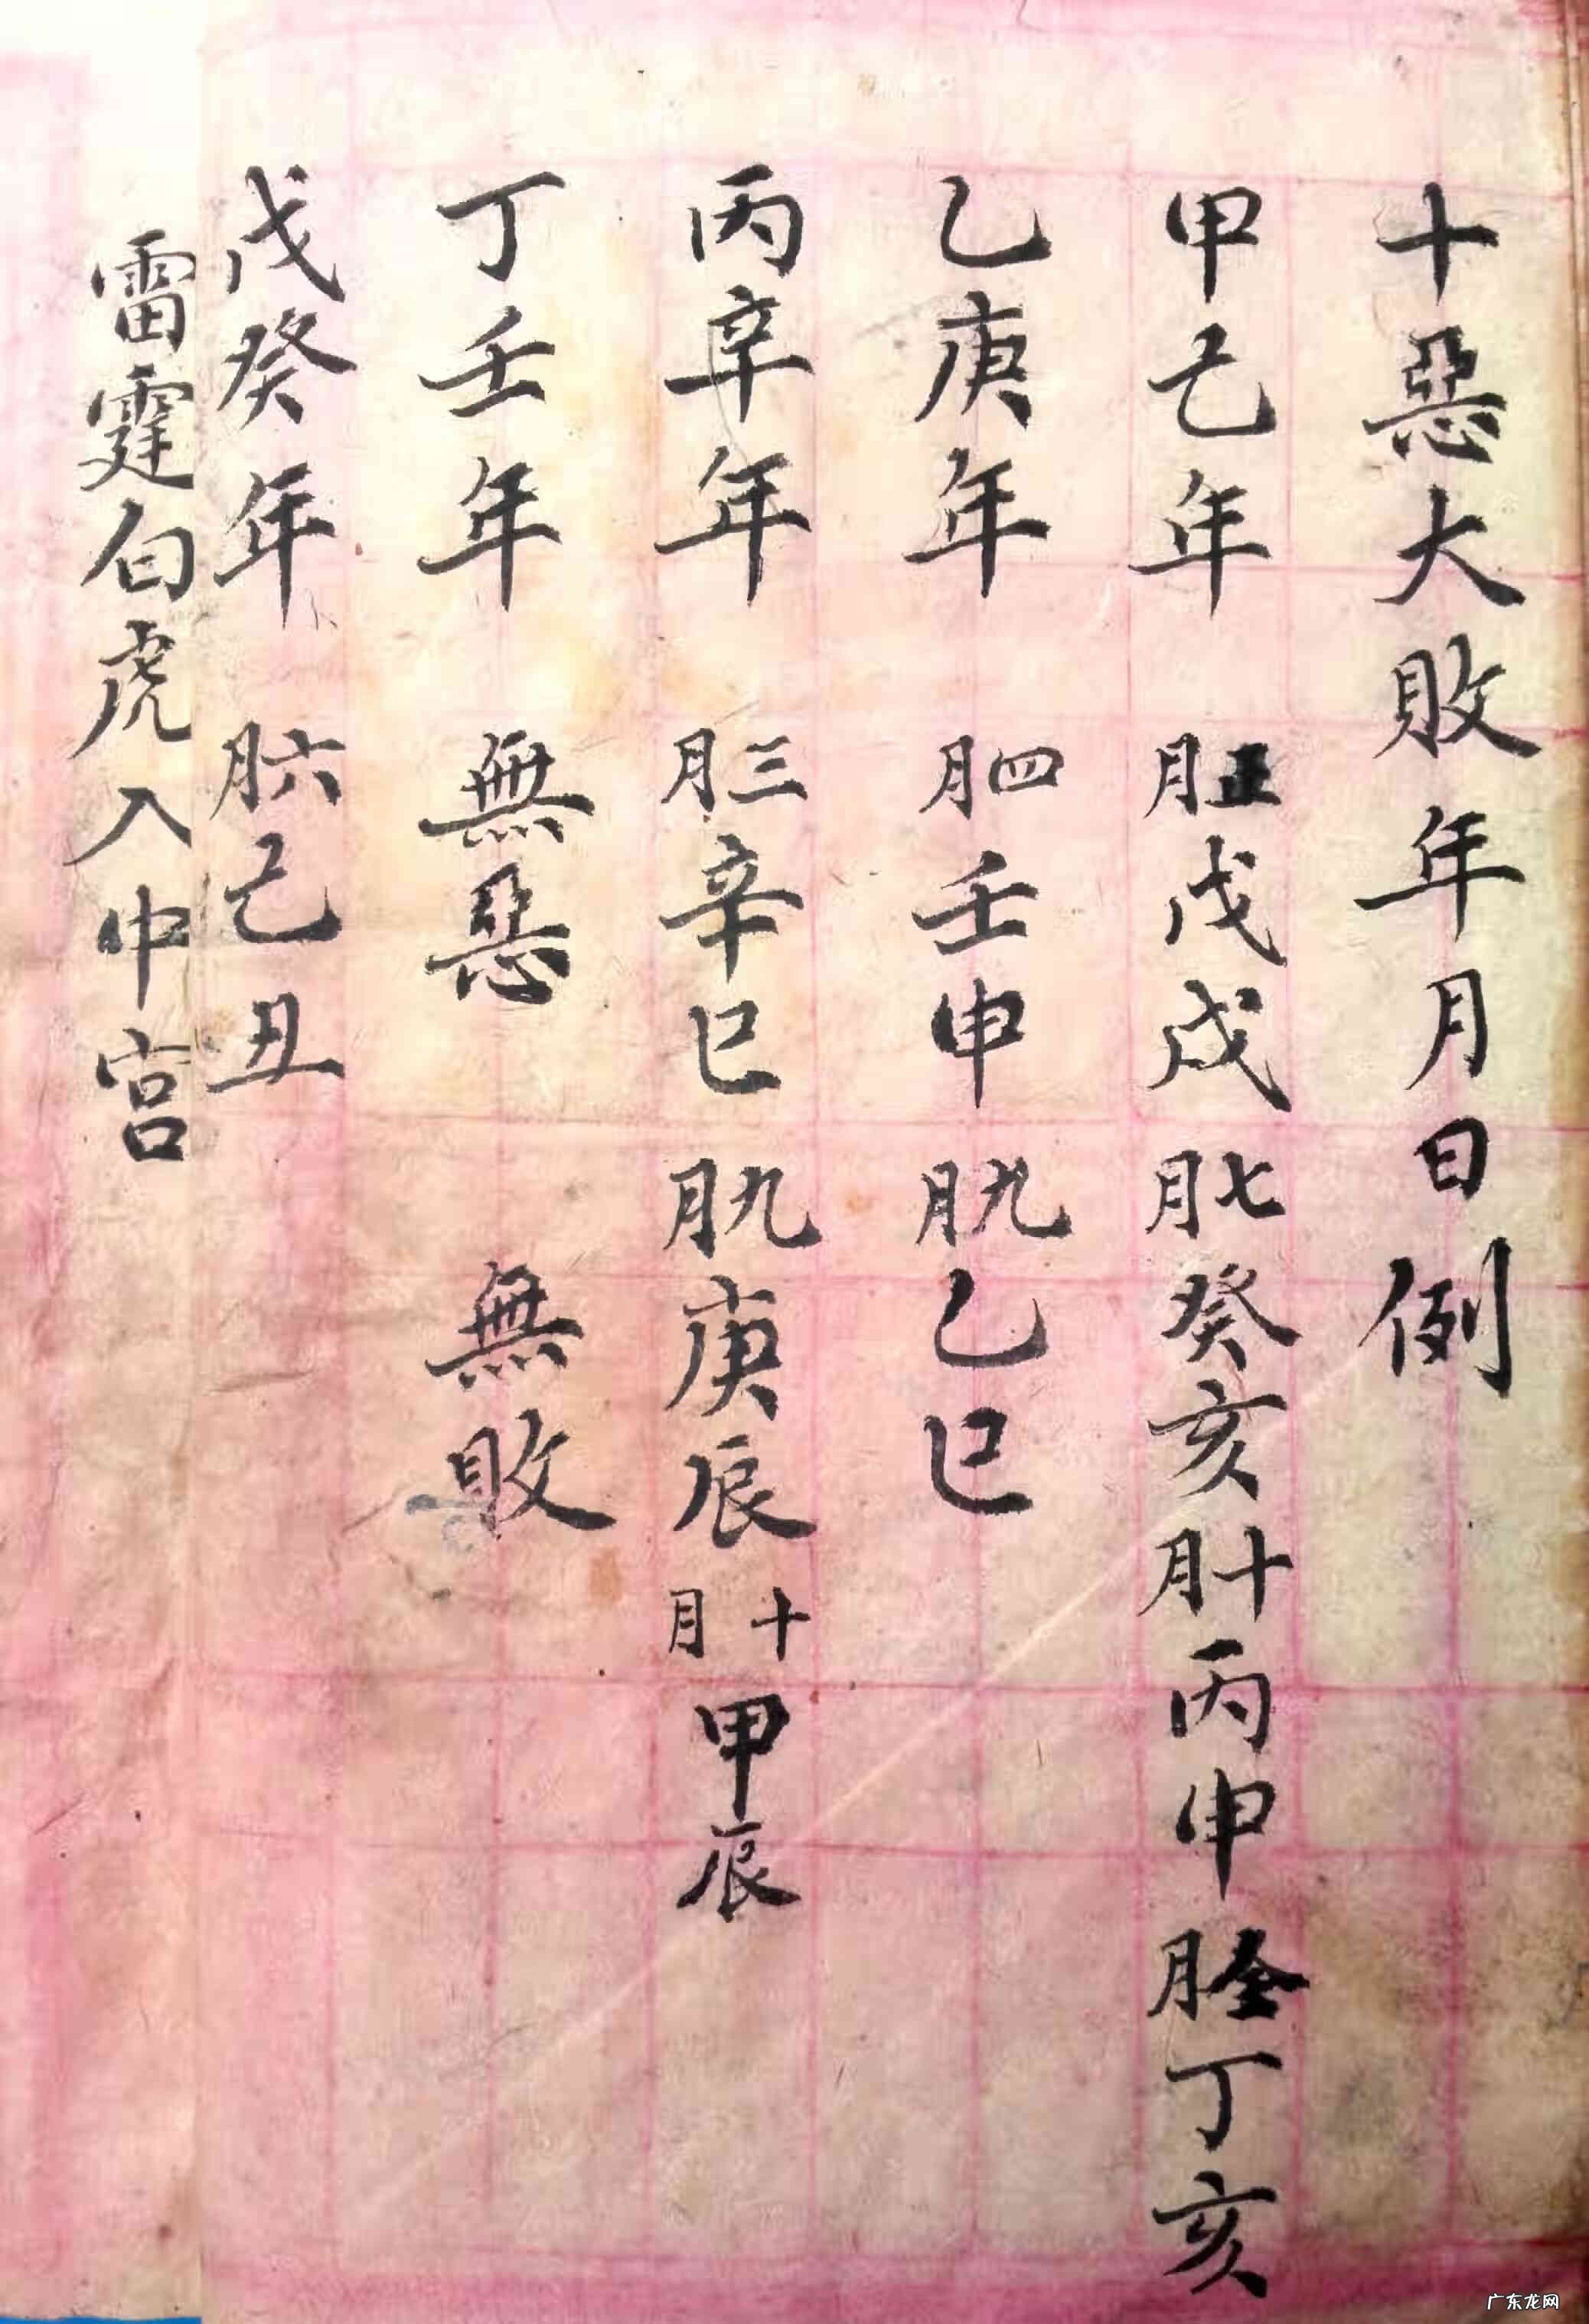 十惡大敗年月日例
甲己年 正月戊戌 七月癸亥 十月丙申 月丁亥
乙庚年 四月壬申 九月乙巳
丙辛年 三月辛巳 九月庚辰 十月甲辰
丁壬年 無惡 無敗
戊癸年 六月己丑
雷霆白虎入中宮
广东龙网